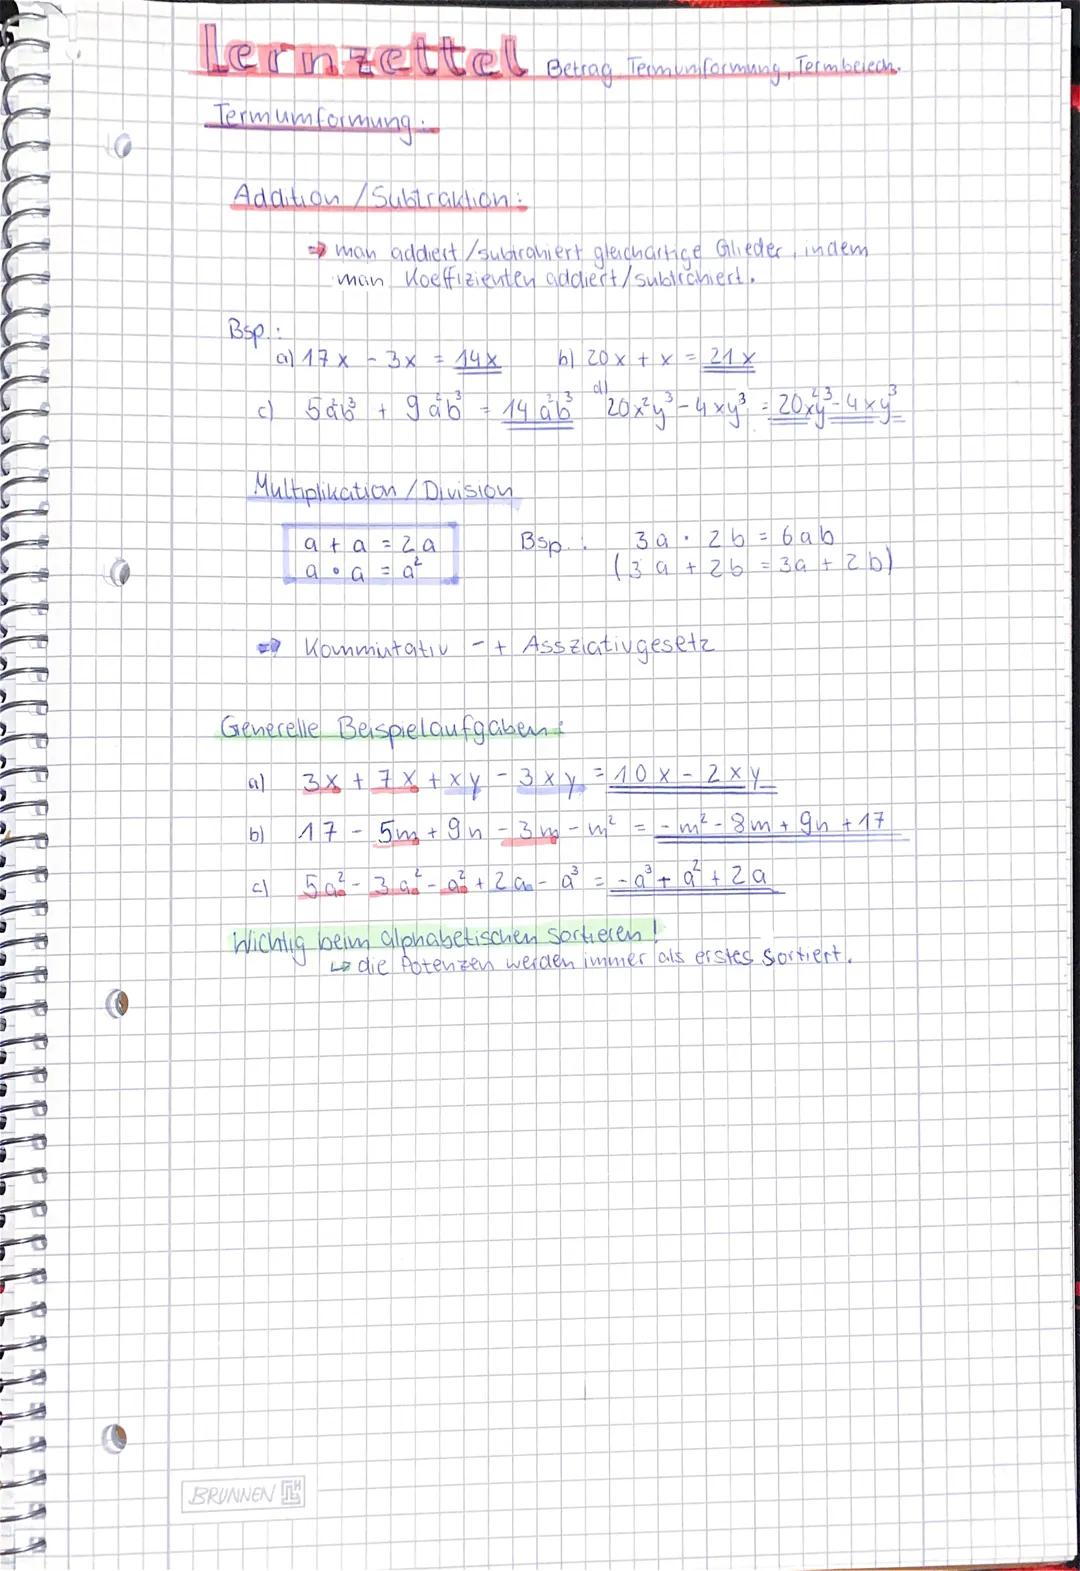 Lernzettel Betrag, Termumformung, Termberech.
Termumformung:
Addition / Subtraktion:
⇒ man addiert/subtrahiert gleichartige Glieder, indem
man Koeffizienten addiert/subtrahiert.
Bsp.:
a) 17x - 3x = 14x b) 20x + x = 21x
c) 5a²b³ + 9a²b³ = 14a²b³ d) 20x²y³ - 4xy³ = 20x²y³ - 4xy³
Multiplikation / Division
a + a = 2a Bsp.: 3a · 2b = 6ab
a · a = a² (3a + 2b = 3a + 2b)
⇒ Kommutativ - + Assziativgesetz
Generelle Beispielaufgaben:
a) 3x + 7x + xy - 3xy = 10x - 2xy
b) 17 - 5m + 9n - 3m - m² = -m² - 8m + 9n + 17
c) 5a² - 3a² - a² + 2a - a³ = -a³ + a² + 2a
Wichtig beim alphabetischen Sortieren!
↳ die Potenzen werden immer als erstes sortiert.
BRUNNEN